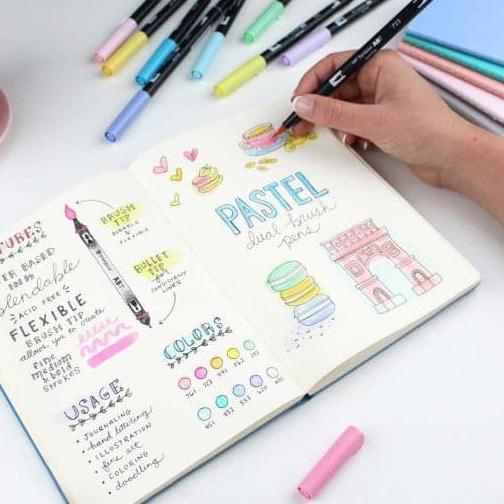 TURES
ER BASED
INK
blendable
ACID FREE
FLEXIBLE
BRUSH TIP
allows you to create
fine
medium
& bold
STROKES
BRUSH
TIP
DURABLE
&
FLEXIBLE
BULLET
TIP
CONSISTENT
LINES
USAGE
• JOURNALING
• hand lettering
• ILLUSTRATION
• fine art
• COLORING
• doodling
COLORS
761 723 991 062 243
451 452 553 620
PASTEL
dual brush
pens
ABT
723